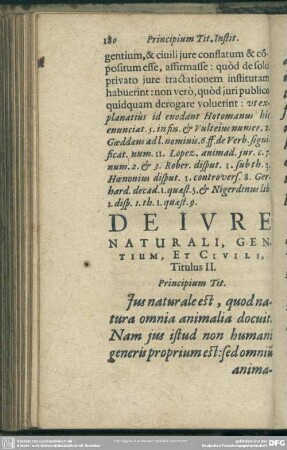 180 Principium Tit. Instit.
gentium, & civili jure conflatum & cō-
positum esse, affirmasse: quòd de solo
privato jure tractationem institutam
habuerint: non verò, quòd juri publico
quidquam derogare voluerint: ut ex-
planatiùs id enodant Hotomanus hîc
enunciat. 5. in fin. & Vulteius numer. 2.
Gœddæus ad l. nominis. 6. ff. de Verb. signi-
ficat. num. 11. Lopez. animad. jur. c. 7.
num. 2. & 3. Rober. disput. 1. sub th. 3.
Hænonius disput. 1. controvers. 8. Ger-
hard. decad. 1. quæst. 5. & Nigerdinus lib.
1. disp. 1. th. 1. quæst. 9.
DE IVRE
NATURALI, GEN-
TIUM, ET CIVILI,
Titulus II.
Principium Tit.
Jus naturale est, quod na-
tura omnia animalia docuit.
Nam jus istud non humani
generis proprium est: sed omniū
anima-